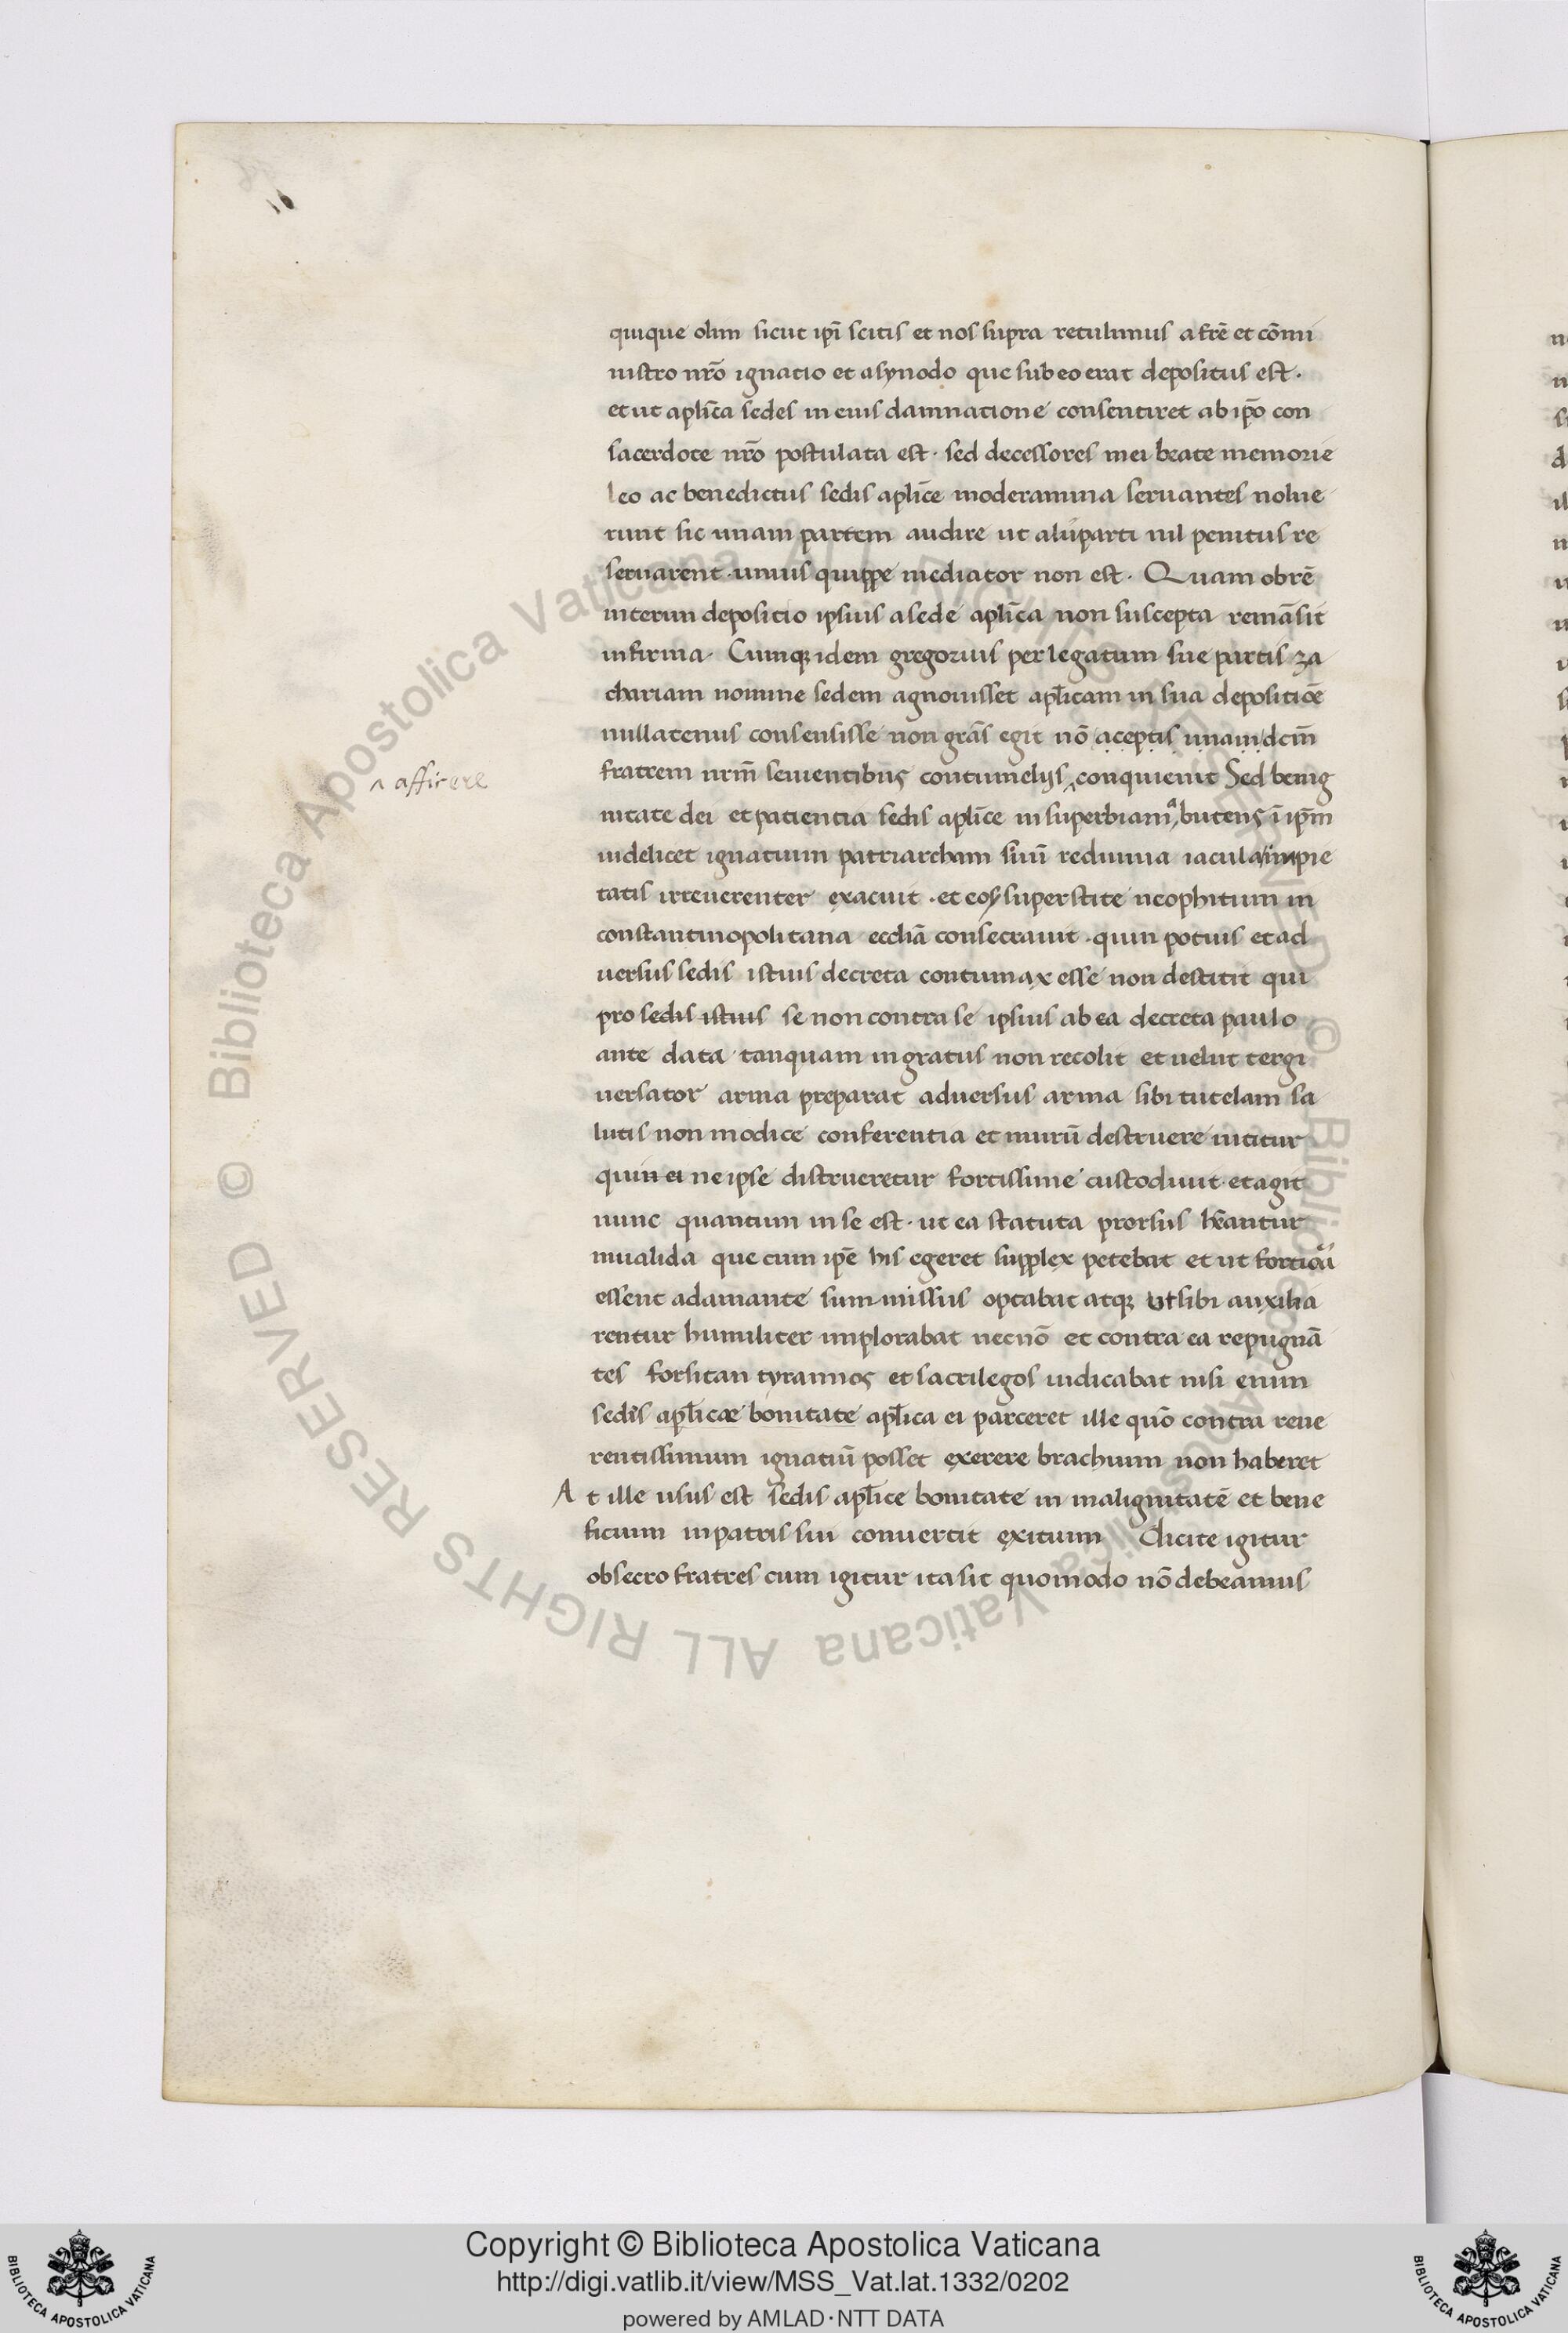 quique olim sicut ipī scitis et nos supra retulimus a frē et cōmi
nistro nrō ignatio et a synodo que sub eo erat depositus est ·
et ut aplīca sedes in eius damnatione consentiret ab ipō con
sacerdote nrō postulata est · sed decessores mei beate memorie
leo ac benedictus sedis aplīce moderamina seruantes nolue
runt sic unam partem audire ut alii parti nil penitus re
seruarent · unius quippe mediator non est · Quam obrē
interim depositio ipsius a sede aplīca non suscepta remāsit
infirma · Cumq; idem gregorius per legatum sue partis za
chariam nomine sedem agnouisset apłicam in sua depositiōe
nullatenus consensisse non grās egit nō aceptis unam dcm̄
fratrem nrm̄ seuientibus contumelijs ‸ conquieuit Sed benig
^ afficere
nitate dei et patientia sedis aplīce in superbiam ‸a butens ī ip̄m
uidelicet ignatium patriarcham suū rediuiua iacula impie
tatis irreuerenter exacuit · et eo superstite neophitum in
constantinopolitana ecclīa consecrauit · quin potius et ad
uersus sedis istius decreta contumax esse non destitit qui
pro sedis istius se non contra se ipsius ab ea decreta paulo
ante data tanquam ingratus non recolit et uelut tergi
uersator arma preparat aduersus arma sibi tutelam sa
lutis non modice conferentia et murū destruere nititur
qui ei ne ipse distrueretur fortissime custodiuit · et agit
nunc quantum in se est · ut ea statuta prorsus hēantur
inualida que cum ipē his egeret supplex petebat et ut fortiōa
essent adamante summissus optabat atq; ut sibi auxilia
rentur humiliter implorabat necnō et contra ea repugnā
tes forsitan tyrannos et sacrilegos iudicabat nisi enim
sedis apłicæ bonitate apłica ei parceret ille quō contra reue
rentissimum ignatiū posset exerere brachium non haberet
At ille usus est sedis apłice bonitate in malignitatē et bene
ficium in patris sui conuertit exitium Dicite igitur
obsecro fratres cum igitur ita sit quomodo nō debeamus
© Biblioteca Apostolica Vaticana ALL RIGHTS RESERVED © Biblioteca Apostolica Vaticana ALL RIGHTS RESERVED
Copyright © Biblioteca Apostolica Vaticana
http://digi.vatlib.it/view/MSS_Vat.lat.1332/0202
powered by AMLAD·NTT DATA
BIBLIOTECA APOSTOLICA VATICANA
BIBLIOTECA APOSTOLICA VATICANA